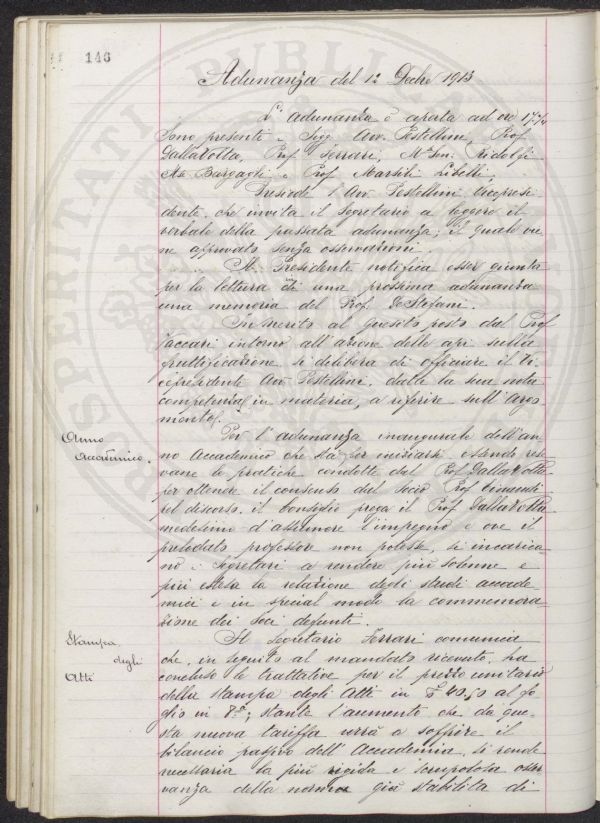 146
Adunanza del 12 Decbre 1913
L'adunanza è aperta ad ore 17 1/4
Sono presenti i Sigg. Avv. Pestellini, Prof
Dalla Volta, Prof Ferrari, Mse Sen. Ridolfi
Bargagli e Prof Marsili Libelli,
Presiede l'Avv. Pestellini Vicepresi-
dente, che invita il Segretario a leggere il
verbale della passata adunanza; il quale vie-
ne approvato senza osservazioni.
Il Presidente notifica esser giunta
per la lettura di una prossima adunanza
una memoria del Prof. De Stefani.
In merito al quesito posto dal Prof
Vaccari intorno all'azione delle api sulla
fruttificazione si delibera di officiare il Vi-
cepresidente Avv. Pestellini, data la sua nota
competenza in materia, a riferire sull'argo-
mento.
Anno
Accademico.
Per l'adunanza inaugurale dell'an-
no Accademico che sta per iniziarsi, essendo riu-
vane le pratiche condotte dal Prof Dalla Volta
per ottenere il consenso del Socio Prof
pel discorso, il Consiglio prega il Prof Dalla Volta
medesimo d'assumere l'impegno e ove il
prelodato professore non potesse, si incarica-
no i Segretari a rendere più solenne e
più estesa la relazione degli studi accade-
mici e in special modo la commemora-
zione dei Soci defunti.
Stampa
degli
Atti
Il Segretario Ferrari comunica
che, in seguito al mandato ricevuto, ha
concluso le trattative per il prezzo unitario
della stampa degli Atti in £ 40,50 al fo-
glio in 8º; stante l'aumento che da que-
sta nuova tariffa verrà a soffrire il
bilancio passivo dell'Accademia, si rende
necessaria la più rigida e scrupolosa osser-
vanza della norma già stabilita di